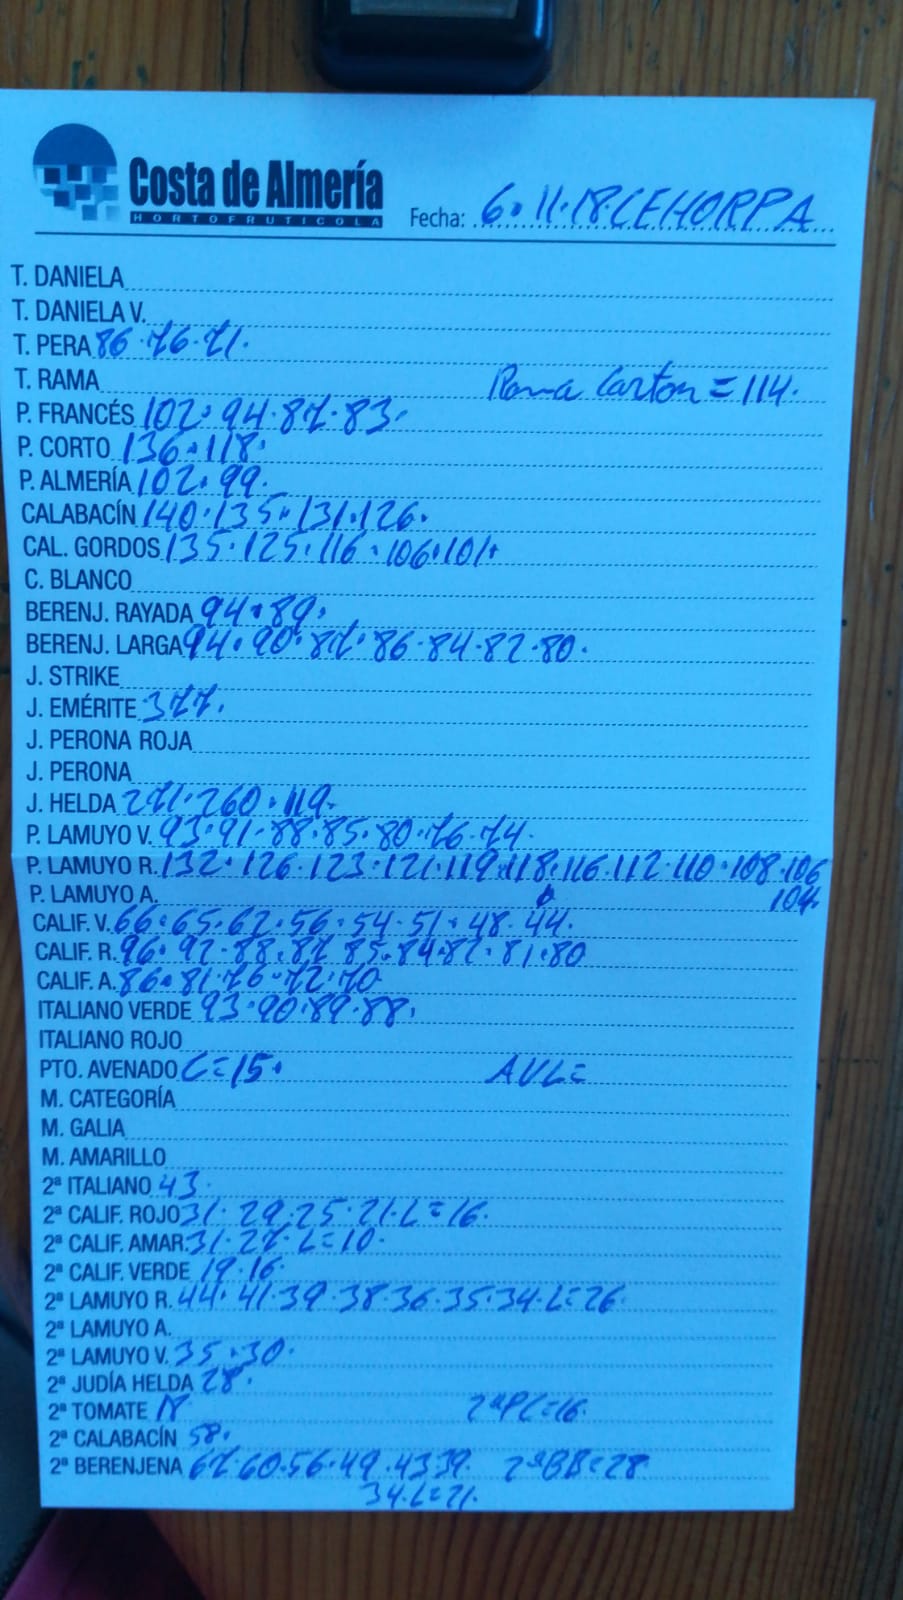 Costa de Almería
HORTOFRUTICOLA
Fecha: 6.11.18.CEHORPA
T. DANIELA
T. DANIELA V.
T. PERA 86.76.71.
T. RAMA Rama Carton = 114.
P. FRANCÉS 102.94.87.83.
P. CORTO 136.118.
P. ALMERÍA 102.99.
CALABACÍN 140.135.131.126.
CAL. GORDOS 135.125.116.106.101.
C. BLANCO
BERENJ. RAYADA 94.89.
BERENJ. LARGA 94.90.87.86.84.82.80.
J. STRIKE
J. EMÉRITE 377.
J. PERONA ROJA
J. PERONA
J. HELDA 271.260.119.
P. LAMUYO V. 93.91.88.85.80.76.74.
P. LAMUYO R. 132.126.123.121.119.118.116.112.110.108.106
P. LAMUYO A. 104.
CALIF. V. 66.65.62.56.54.51.48.44.
CALIF. R. 96.92.88.87.85.84.82.81.80
CALIF. A. 86.81.76.72.70
ITALIANO VERDE 93.90.89.88.
ITALIANO ROJO
PTO. AVENADO C=15. AVL=
M. CATEGORÍA
M. GALIA
M. AMARILLO
2ª ITALIANO 43.
2ª CALIF. ROJO 31.29.25.21.L=16.
2ª CALIF. AMAR. 31.27.L=10.
2ª CALIF. VERDE 19.16.
2ª LAMUYO R. 44.41.39.38.36.35.34.L=26.
2ª LAMUYO A.
2ª LAMUYO V. 35.30.
2ª JUDÍA HELDA 28.
2ª TOMATE 2ªPC=16.
2ª CALABACÍN 58.
2ª BERENJENA 67.60.56.49.43.39. 2ªBB=28.
34.L=21.